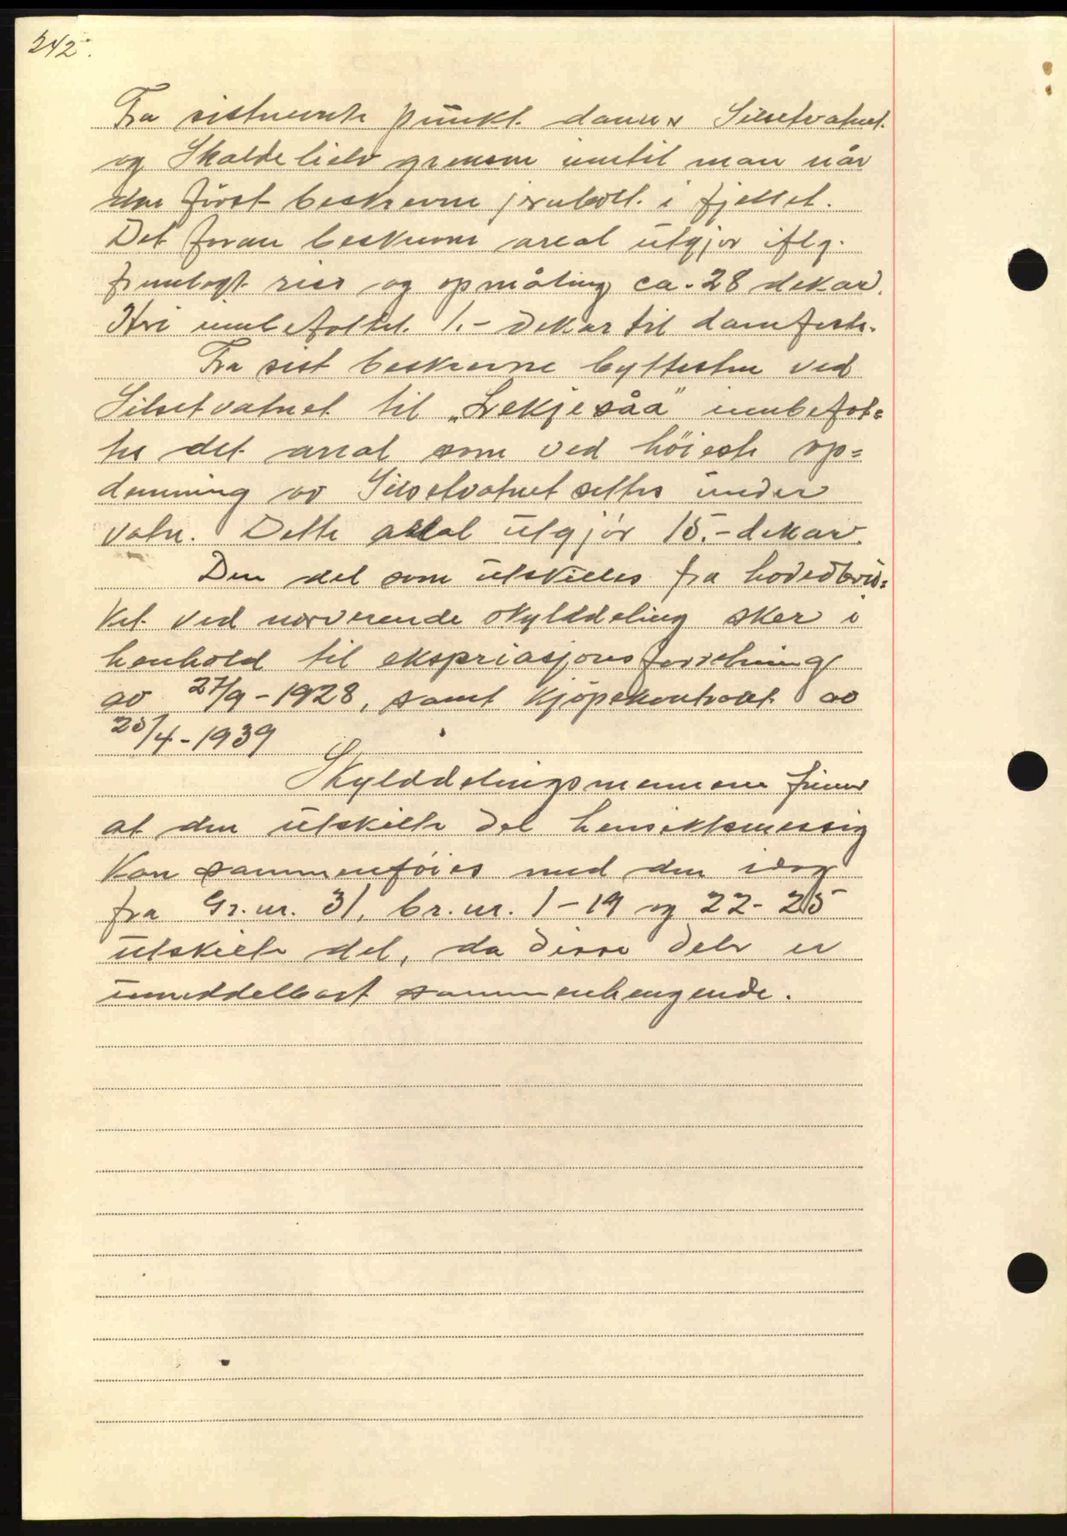 242.
Fra sistnevnte punkt danner Silsetvatnet
og Skaldelielv grensen inntil man når
den først beskrevne jernbolt i fjellet.
Det foran beskrevne areal utgjør iflg.
fremlagt riss og opmåling ca. 28 dekar.
Heri innbefattet 1.- dekar til damfeste.
Fra sist beskrevne byttesten ved
Silsetvatnet til „Lrekjesåa" innbefat=
tes det areal som ved höieste op=
demning av Silsetvatnet settes under
vatn. Dette areal utgjör 15.- dekar.
Den del som utskilles fra hovedbru=
ket ved nærverende skylddeling sker i
henhold til ekspriasjonsforretning
av 27/9-1928, samt kjöpekontrakt av
25/4-1939
Skylddelingsmennene finner
at den utskilte del hensiktsmessig
kan sammenföies med den idag
fra Gr.nr. 31, br.nr. 1-19 og 22-25
utskilte del, da disse deler er
umiddelbart sammenhengende.